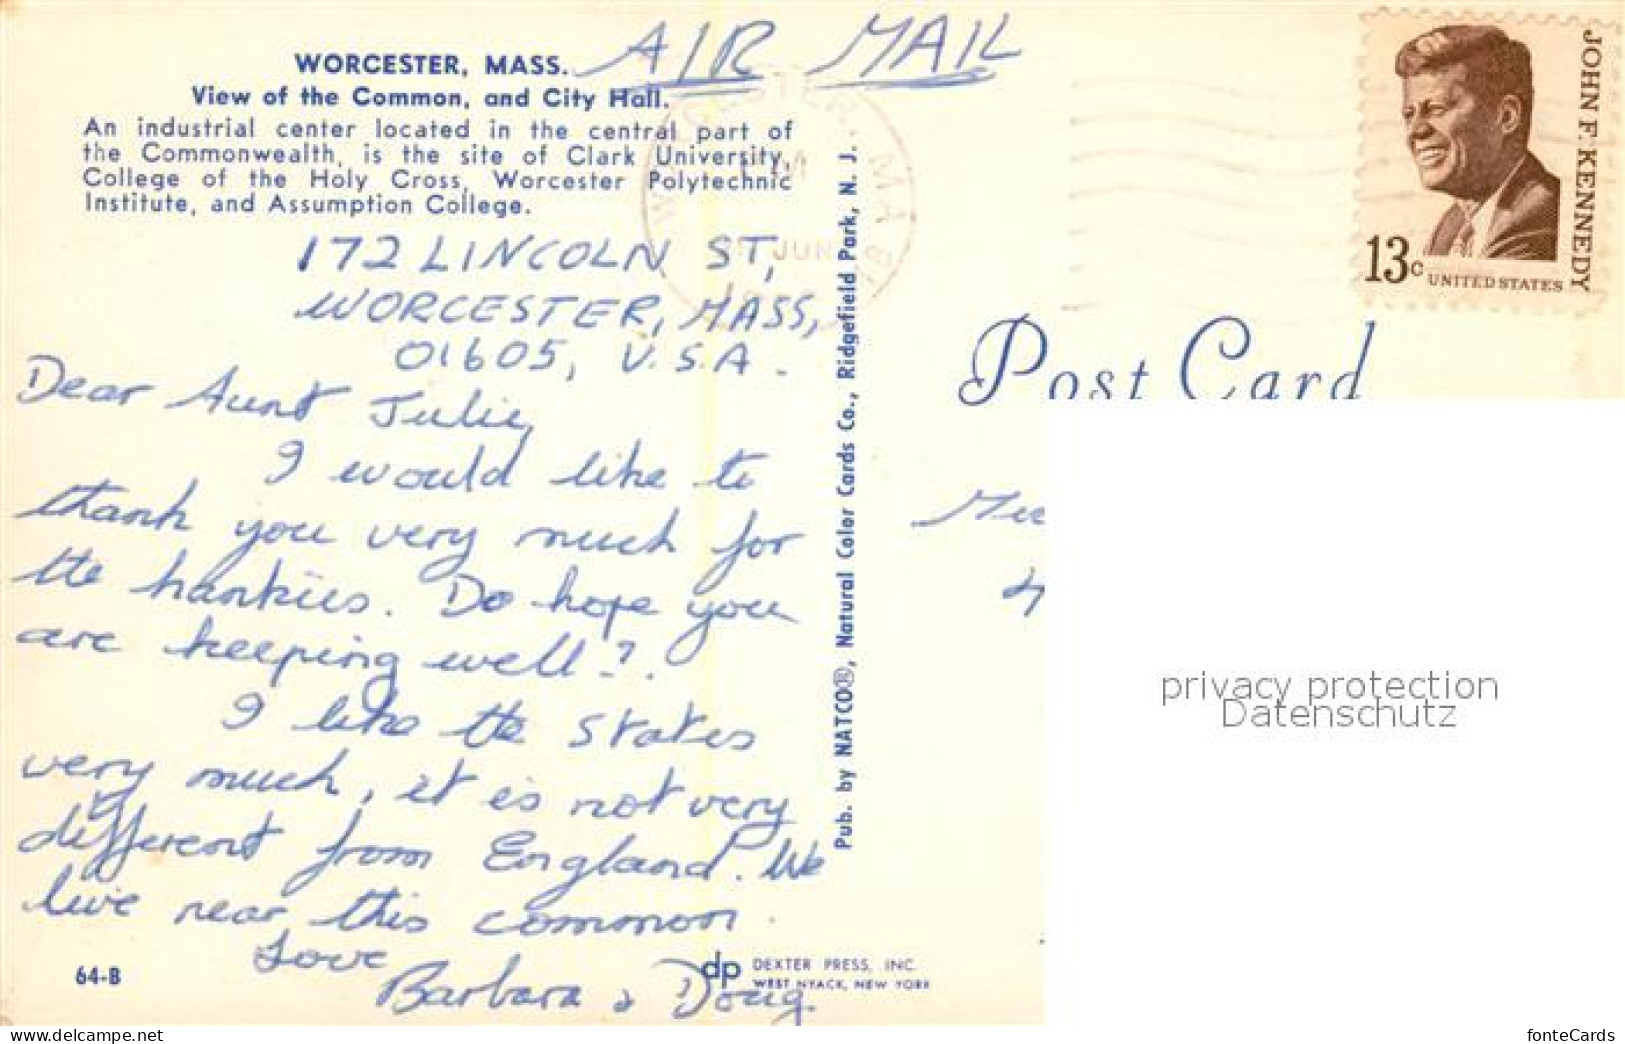 AIR MAIL
WORCESTER, MASS.
View of the Common, and City Hall.
An industrial center located in the central part of
the Commonwealth, is the site of Clark University,
College of the Holy Cross, Worcester Polytechnic
Institute, and Assumption College.
172 LINCOLN ST,
WORCESTER, MASS,
01605, U.S.A.
Dear Aunt Julie,
I would like to
thank you very much for
the hankies. Do hope you
are keeping well?.
I like the States
very much, it is not very
different from England. We
live near this common.
Love
Barbara & Doug
64-B
dp DEXTER PRESS, INC.
WEST NYACK, NEW YORK
Pub. by NATCO®, Natural Color Cards Co., Ridgefield Park, N. J.
JUN
JOHN F. KENNEDY
13c
UNITED STATES
Post Card
privacy protection
Datenschutz
www.ansichtskartenversand.com
fonteCards